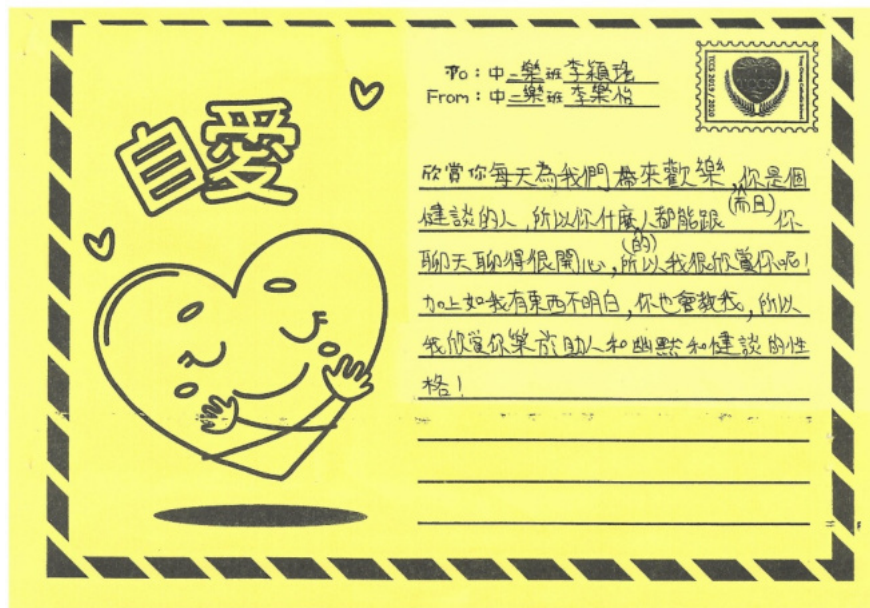 自愛
To：中二樂班李穎瑤
From：中二樂班李樂怡
TCCS 2019 / 2020
欣賞你每天為我們帶來歡樂，你是個
健談的人，所以你什麼人都能跟(而且)你
聊天聊得很開心(的)，所以我很欣賞你呢！
加上如我有東西不明白，你也會教我，所以
我欣賞你樂於助人和幽默和健談的性
格！